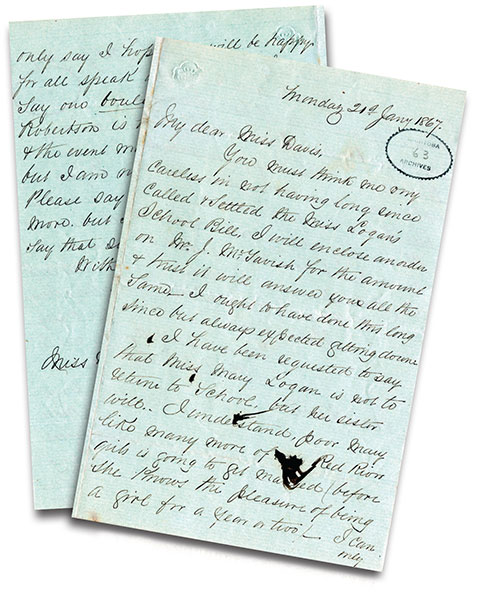 only say I hope will be happy
for all speak
Say one
Robertson is
& the event
but I am
Please say
more. but
say that
With
Miss
Monday 21st Jany 1867.
My dear Miss Davis,
MANITOBA
63
ARCHIVES
You must think me very
careless in not having long since
called & settled the Miss Logan's
School Bill, I will enclose an order
on Dr. J. McTavish for the amount
& trust it will answer you all the
Same. I ought to have done this long
since but always expected getting down
I have been requested to say
that Miss Mary Logan is not to
return to School, but her sister
will. I understand, poor Mary
like many more of Red River
girls is going to get married/before
She knows the pleasure of being
a girl for a Year or two/ I can
only